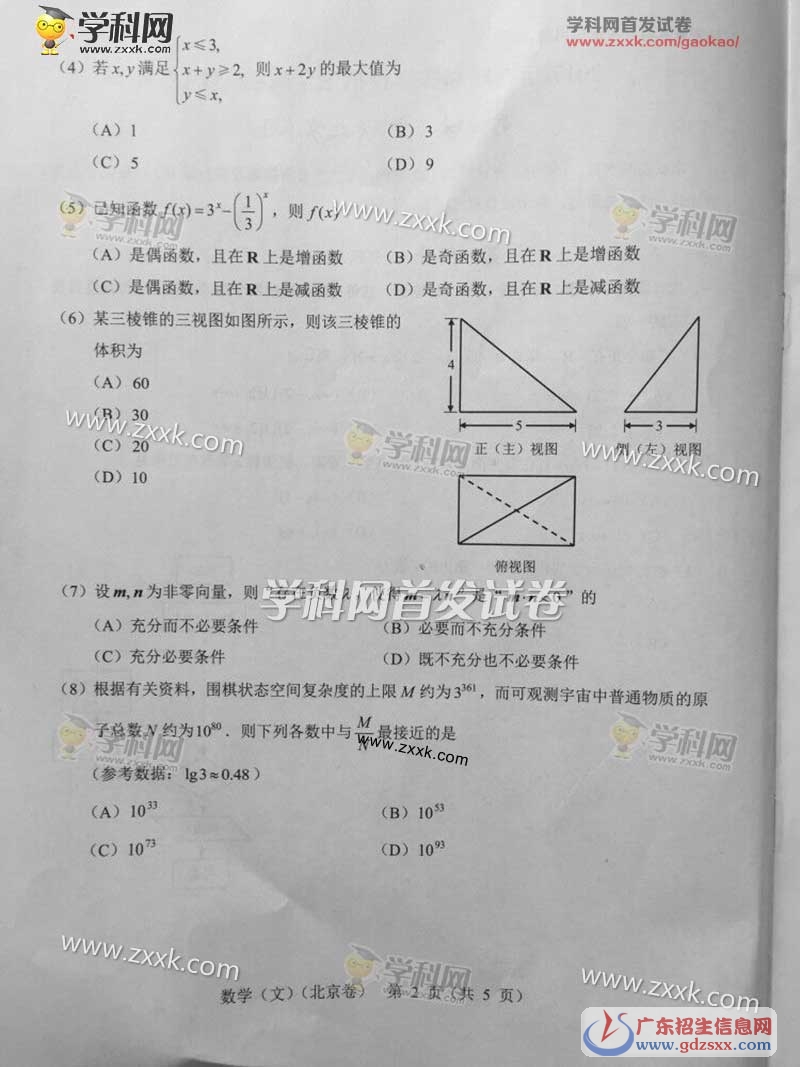 学科网
www.zxxk.com
学科网首发试卷
www.zxxk.com/gaokao/
(4) 若 x, y 满足 { x≤3, x+y≥2, y≤x, 则 x+2y 的最大值为
(A) 1 (B) 3
(C) 5 (D) 9
(5) 已知函数 f(x)=3^x-(1/3)^x, 则 f(x)
www.zxxk.com
(A) 是偶函数, 且在 R 上是增函数 (B) 是奇函数, 且在 R 上是增函数
(C) 是偶函数, 且在 R 上是减函数 (D) 是奇函数, 且在 R 上是减函数
(6) 某三棱锥的三视图如图所示, 则该三棱锥的
体积为
(A) 60
(B) 30
(C) 20
(D) 10
4
5
3
正（主）视图 侧（左）视图
俯视图
www.zxxk.com
学科网
www.zxxk.com
(7) 设 m, n 为非零向量, 则 是 “m·n<0” 的
学科网首发试卷
(A) 充分而不必要条件 (B) 必要而不充分条件
(C) 充分必要条件 (D) 既不充分也不必要条件
(8) 根据有关资料, 围棋状态空间复杂度的上限 M 约为 3^361, 而可观测宇宙中普通物质的原
子总数 N 约为 10^80. 则下列各数中与 M/N 最接近的是
www.zxxk.com
学科网
(参考数据: lg3≈0.48)
(A) 10^33 (B) 10^53
(C) 10^73 (D) 10^93
www.zxxk.com
学科网
www.zxxk.com
数学（文）（北京卷） 第 2 页（共 5 页）
广东招生信息网
www.gdzsxx.com